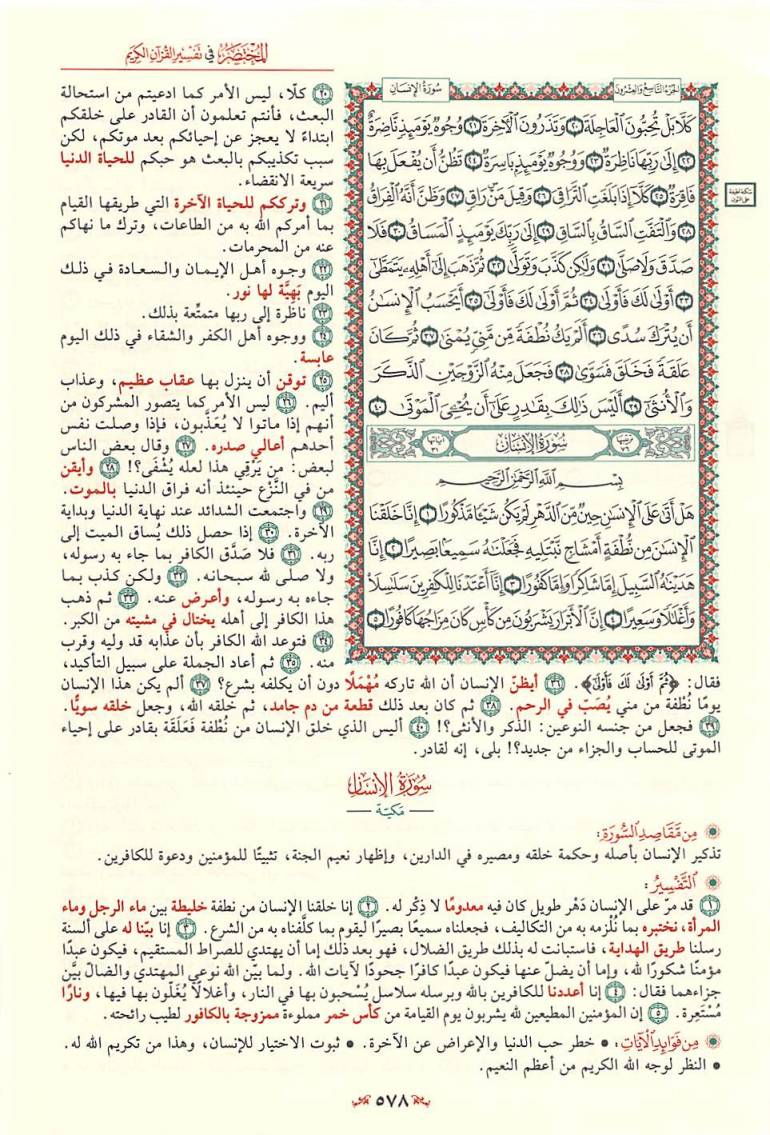 المختصر في تفسير القرآن الكريم
الجزء التاسع والعشرون
سورة الإنسان
كَلَّا بَلْ تُحِبُّونَ الْعَاجِلَةَ ٢٠ وَتَذَرُونَ الْآخِرَةَ ٢١ وُجُوهٌ يَوْمَئِذٍ نَّاضِرَةٌ
٢٢ إِلَىٰ رَبِّهَا نَاظِرَةٌ ٢٣ وَوُجُوهٌ يَوْمَئِذٍ بَاسِرَةٌ ٢٤ تَظُنُّ أَن يُفْعَلَ بِهَا
فَاقِرَةٌ ٢٥ كَلَّا إِذَا بَلَغَتِ التَّرَاقِيَ ٢٦ وَقِيلَ مَنْ رَاقٍ ٢٧ وَظَنَّ أَنَّهُ الْفِرَاقُ
٢٨ وَالْتَفَّتِ السَّاقُ بِالسَّاقِ ٢٩ إِلَىٰ رَبِّكَ يَوْمَئِذٍ الْمَسَاقُ ٣٠ فَلَا
صَدَّقَ وَلَا صَلَّىٰ ٣١ وَلَٰكِن كَذَّبَ وَتَوَلَّىٰ ٣٢ ثُمَّ ذَهَبَ إِلَىٰ أَهْلِهِ يَتَمَطَّىٰ
٣٣ أَوْلَىٰ لَكَ فَأَوْلَىٰ ٣٤ ثُمَّ أَوْلَىٰ لَكَ فَأَوْلَىٰ ٣٥ أَيَحْسَبُ الْإِنسَانُ
أَن يُتْرَكَ سُدًى ٣٦ أَلَمْ يَكُ نُطْفَةً مِّن مَّنِيٍّ يُمْنَىٰ ٣٧ ثُمَّ كَانَ
عَلَقَةً فَخَلَقَ فَسَوَّىٰ ٣٨ فَجَعَلَ مِنْهُ الزَّوْجَيْنِ الذَّكَرَ
وَالْأُنثَىٰ ٣٩ أَلَيْسَ ذَٰلِكَ بِقَادِرٍ عَلَىٰ أَن يُحْيِيَ الْمَوْتَىٰ ٤٠
ترتيبها ٧٦ سورة الإنسان آياتها ٣١
بِسْمِ اللَّهِ الرَّحْمَٰنِ الرَّحِيمِ
هَلْ أَتَىٰ عَلَى الْإِنسَانِ حِينٌ مِّنَ الدَّهْرِ لَمْ يَكُن شَيْئًا مَّذْكُورًا ١ إِنَّا خَلَقْنَا
الْإِنسَانَ مِن نُّطْفَةٍ أَمْشَاجٍ نَّبْتَلِيهِ فَجَعَلْنَاهُ سَمِيعًا بَصِيرًا ٢ إِنَّا
هَدَيْنَاهُ السَّبِيلَ إِمَّا شَاكِرًا وَإِمَّا كَفُورًا ٣ إِنَّا أَعْتَدْنَا لِلْكَافِرِينَ سَلَاسِلَا
وَأَغْلَالًا وَسَعِيرًا ٤ إِنَّ الْأَبْرَارَ يَشْرَبُونَ مِن كَأْسٍ كَانَ مِزَاجُهَا كَافُورًا ٥
سكتة لطيفة
على النون
٢٠ كلّا، ليس الأمر كما ادعيتم من استحالة
البعث، فأنتم تعلمون أن القادر على خلقكم
ابتداءً لا يعجز عن إحيائكم بعد موتكم، لكن
سبب تكذيبكم بالبعث هو حبكم للحياة الدنيا
سريعة الانقضاء.
٢١ وترككم للحياة الآخرة التي طريقها القيام
بما أمركم الله به من الطاعات، وترك ما نهاكم
عنه من المحرمات.
٢٢ وجوه أهل الإيمان والسعادة في ذلك
اليوم بَهِيَّة لها نور.
٢٣ ناظرة إلى ربها متمتِّعة بذلك.
٢٤ ووجوه أهل الكفر والشقاء في ذلك اليوم
عابسة.
٢٥ توقن أن ينزل بها عقاب عظيم، وعذاب
أليم. ٢٦ ليس الأمر كما يتصور المشركون من
أنهم إذا ماتوا لا يُعَذَّبون، فإذا وصلت نفس
أحدهم أعالي صدره. ٢٧ وقال بعض الناس
لبعض: من يَرْقِي هذا لعله يُشْفَى؟! ٢٨ وأيقن
من في النَّزْع حينئذ أنه فراق الدنيا بالموت.
٢٩ واجتمعت الشدائد عند نهاية الدنيا وبداية
الآخرة. ٣٠ إذا حصل ذلك يُساق الميت إلى
ربه. ٣١ فلا صَدَّق الكافر بما جاء به رسوله،
ولا صلى لله سبحانه. ٣٢ ولكن كذب بما
جاءه به رسوله، وأعرض عنه. ٣٣ ثم ذهب
هذا الكافر إلى أهله يختال في مشيته من الكبر.
٣٤ فتوعد الله الكافر بأن عذابه قد وليه وقرب
منه. ٣٥ ثم أعاد الجملة على سبيل التأكيد،
فقال: ﴿ثُمَّ أَوْلَىٰ لَكَ فَأَوْلَىٰ﴾. ٣٦ أيظنّ الإنسان أن الله تاركه مُهْمَلًا دون أن يكلفه بشرع؟ ٣٧ ألم يكن هذا الإنسان
يومًا نُطْفة من مني يُصَبّ في الرحم. ٣٨ ثم كان بعد ذلك قطعة من دم جامد، ثم خلقه الله، وجعل خلقه سويًّا.
٣٩ فجعل من جنسه النوعين: الذكر والأنثى؟! ٤٠ أليس الذي خلق الإنسان من نُطْفة فَعَلَقة بقادر على إحياء
الموتى للحساب والجزاء من جديد؟! بلى، إنه لقادر.
سورة الإنسان
— مكية —
من مقاصد السورة:
تذكير الإنسان بأصله وحكمة خلقه ومصيره في الدارين، وإظهار نعيم الجنة، تثبيتًا للمؤمنين ودعوة للكافرين.
التفسير:
١ قد مرّ على الإنسان دَهْر طويل كان فيه معدومًا لا ذِكْر له. ٢ إنا خلقنا الإنسان من نطفة خليطة بين ماء الرجل وماء
المرأة، نختبره بما نُلْزمه به من التكاليف، فجعلناه سميعًا بصيرًا ليقوم بما كلَّفناه به من الشرع. ٣ إنا بيّنا له على ألسنة
رسلنا طريق الهداية، فاستبانت له بذلك طريق الضلال، فهو بعد ذلك إما أن يهتدي للصراط المستقيم، فيكون عبدًا
مؤمنًا شكورًا لله، وإما أن يضلّ عنها فيكون عبدًا كافرًا جحودًا لآيات الله. ولما بيّن الله نوعي المهتدي والضالّ بيَّن
جزاءهما فقال: ٤ إنا أعددنا للكافرين بالله وبرسله سلاسل يُسْحبون بها في النار، وأغلالًا يُغَلّون بها فيها، ونارًا
مُسْتَعِرة. ٥ إن المؤمنين المطيعين لله يشربون يوم القيامة من كأس خمر مملوءة ممزوجة بالكافور لطيب رائحته.
من فوائد الآيات: • خطر حب الدنيا والإعراض عن الآخرة. • ثبوت الاختيار للإنسان، وهذا من تكريم الله له.
• النظر لوجه الله الكريم من أعظم النعيم.
٥٧٨